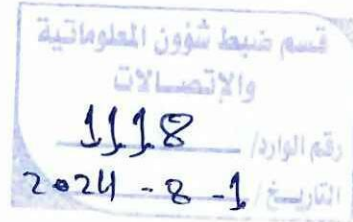 قسم ضبط شؤون المعلوماتية
والإتصالات
رقم الوارد/ 1118
التاريخ/ 2024 - 8 - 1